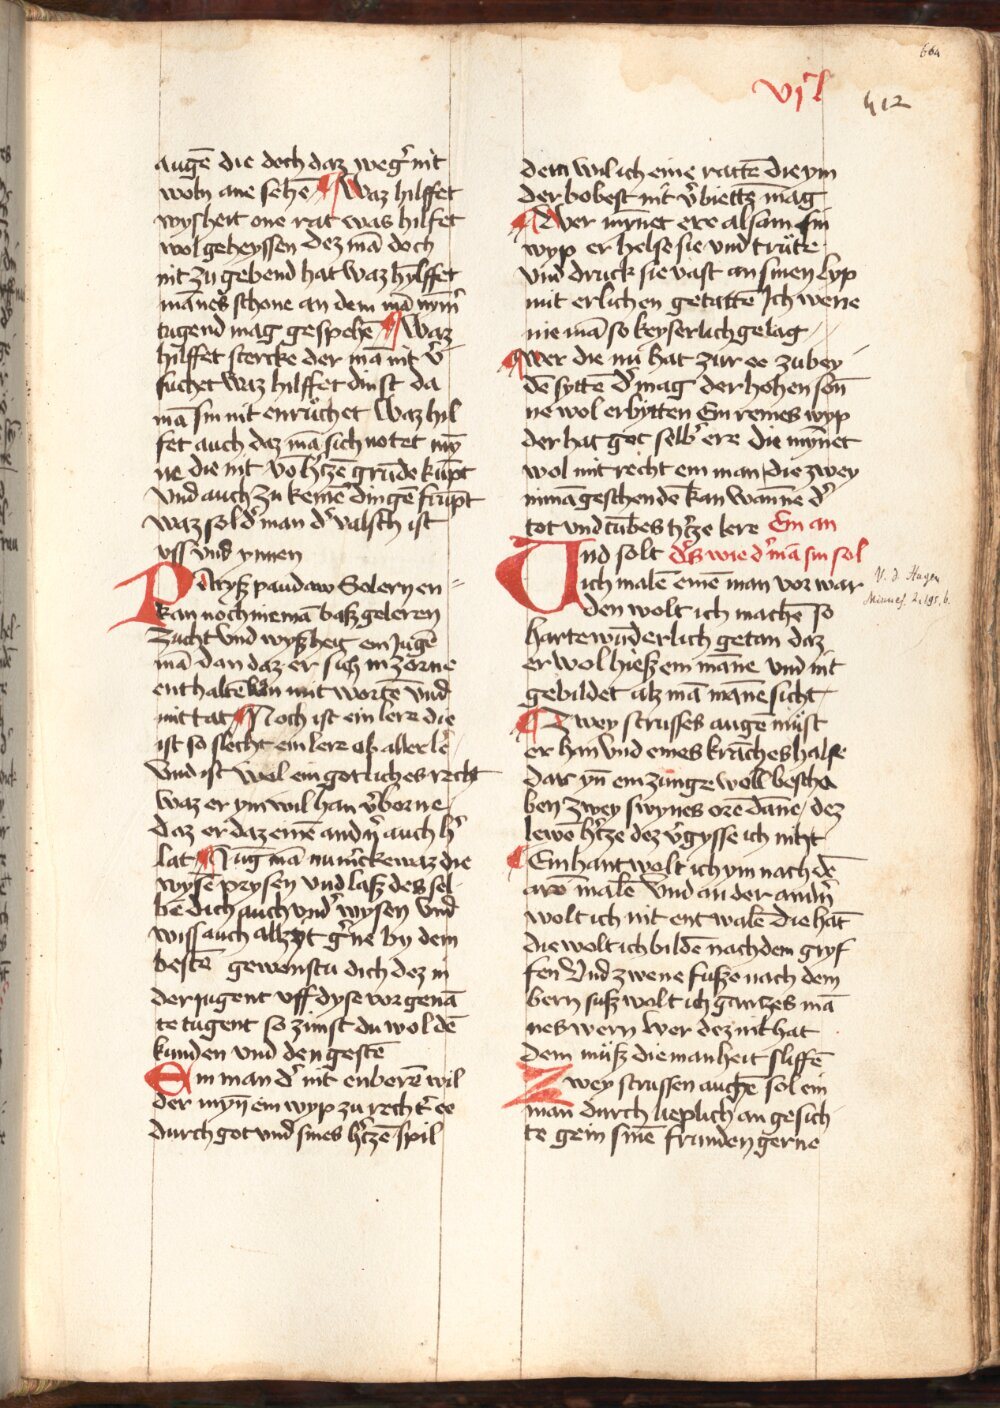 664
vij
412
augē die doch daz weg̉ nit
woln ane sehē ¶ Waz hilffet
wyßheit one rat was hilfet
wol geheyssen dez mā doch
nit zu gebend hat waz hylffet
mānes schone an dem mā nȳm̉
tugend mag gespehē ¶ Waz
hilffet stercke der mā nit v̉
suchet Waz hilffet dinst da
mā sin nit enruͦchet Waz hil
fet auch daz mā sich notet mȳ
ne die nit vō h̉tzē grūde kūpt
vnd auch zu keinē dingē frūpt
waz sol d̉ man d̉ valsch ist
vff vnd ynnen
kan noch niemā baß geleren
zucht vnd wyßheit ein Jugē
mā dan daz er sich in zorne
enthaltē kan mit wortē vnd
mit tat ¶ Noch ist ein lere die
ist so slecht ein lere ob aller le̓
vnd ist wol ein gotliches recht
waz er ym wil han v̉borne
daz er daz einē and̉n auch h̉
lat ¶ Jūg mā nu m̉cke waz die
wysē prysen vnd laß des sel
bē dich auch vnd̉ wysen vnd
wiss auch allzyt g̉ne by dem
bestē gewenstu dich dez in
der jugent vff dyse vorgenā
te tugent so zimst du wol dē
kunden vnd den gestē
Ein man d̉ nit enberē wil
der mȳn ein wyp zu recht̉ ee
durch got vnd sines h̉tzē spil
dem wil ich eine rattē die ym
der bobest nit v̉biettē mag
¶ Wer mȳnet ere alsam sin
wyp er helse sie vnd truͤte
vnd druck sie vast an sinen lyp
mit erlichen getattē Ich wene
nie mā so keyserlich gelag
¶ Wer die nū hat zur ee zu bey
dē syttē d̉ mag der hohen sōn
ne wol erbytten Ein reines wyp
der hat got selb̉ ere die mȳnet
wol mit recht ein man die zwey
nimā geschendē kan wanne d̉
tot vnd tūbes h̉tze lere Ein an
Und solt d̉s wie d̉ mā sin sol
ich malē einē man vor war
den wolt ich machē so
harte wūderlich getan daz
er wol hieß ein māne vnd nit
gebildet alz mā māne sicht
¶ Zwey strusses augē muͤst
er han vnd eines krāches halse
dar yn ein zunge woll bescha
ben zwey swynes ore dāne dez
lewē h̉tze dez v̉gysse ich nicht
¶ Ein hant wolt ich ym nach dē
arō malē vnd an der and̉n
wolt ich nit entwalē die hāt
die wolt ich bildē nach dem gryf
fen vnd zwene fuße nach dem
bern suß wolt ich gantzes mā
nes wern wer dez nit hat
dem muͤß die manheit sliffē
Zwey strussen auchē sol ein
man durch lieplich angesich
te gein sinē frunden gerne
V. d. Hagen
Minnes. 2, 195. b.